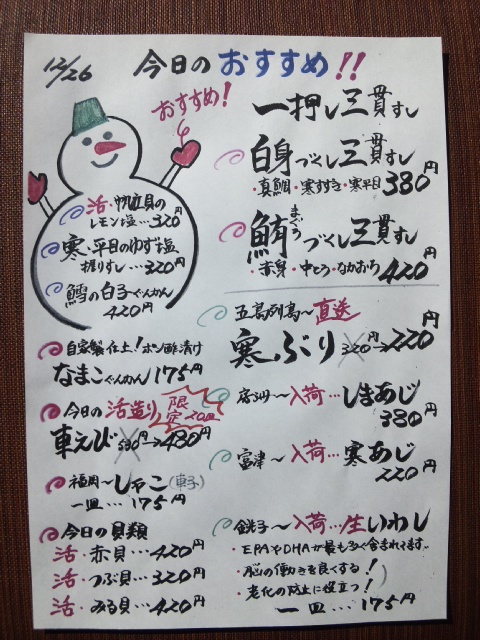 12/26 今日のおすすめ!!
おすすめ!
活・帆立貝の
レモン塩…320円
寒・平目のゆず塩
握りすし…320円
鱈の白子ぐんかん
420円
自家製仕上!ポン酢漬け
なまこぐんかん 175円
今日の活造り 限定20皿
車えび 530円→480円
福岡〜しゃこ(子)
一皿…175円
今日の貝類
活・赤貝…420円
活・つぶ貝…320円
活・みる貝…420円
一押し三貫すし
白身づくし三貫すし
・真鯛・寒すずき・寒平目 380円
鮪まぐろづくし三貫すし
・赤身・中とろ・なかおち 420円
五島列島〜直送
寒ぶり 320円→220円
〜入荷…しまあじ
380円
富津〜入荷…寒あじ
220円
銚子〜入荷…生いわし
・EPAやDHAが最も多く含まれてます。
・脳の働きを良くする!
・老化の防止に役立つ!
一皿…175円